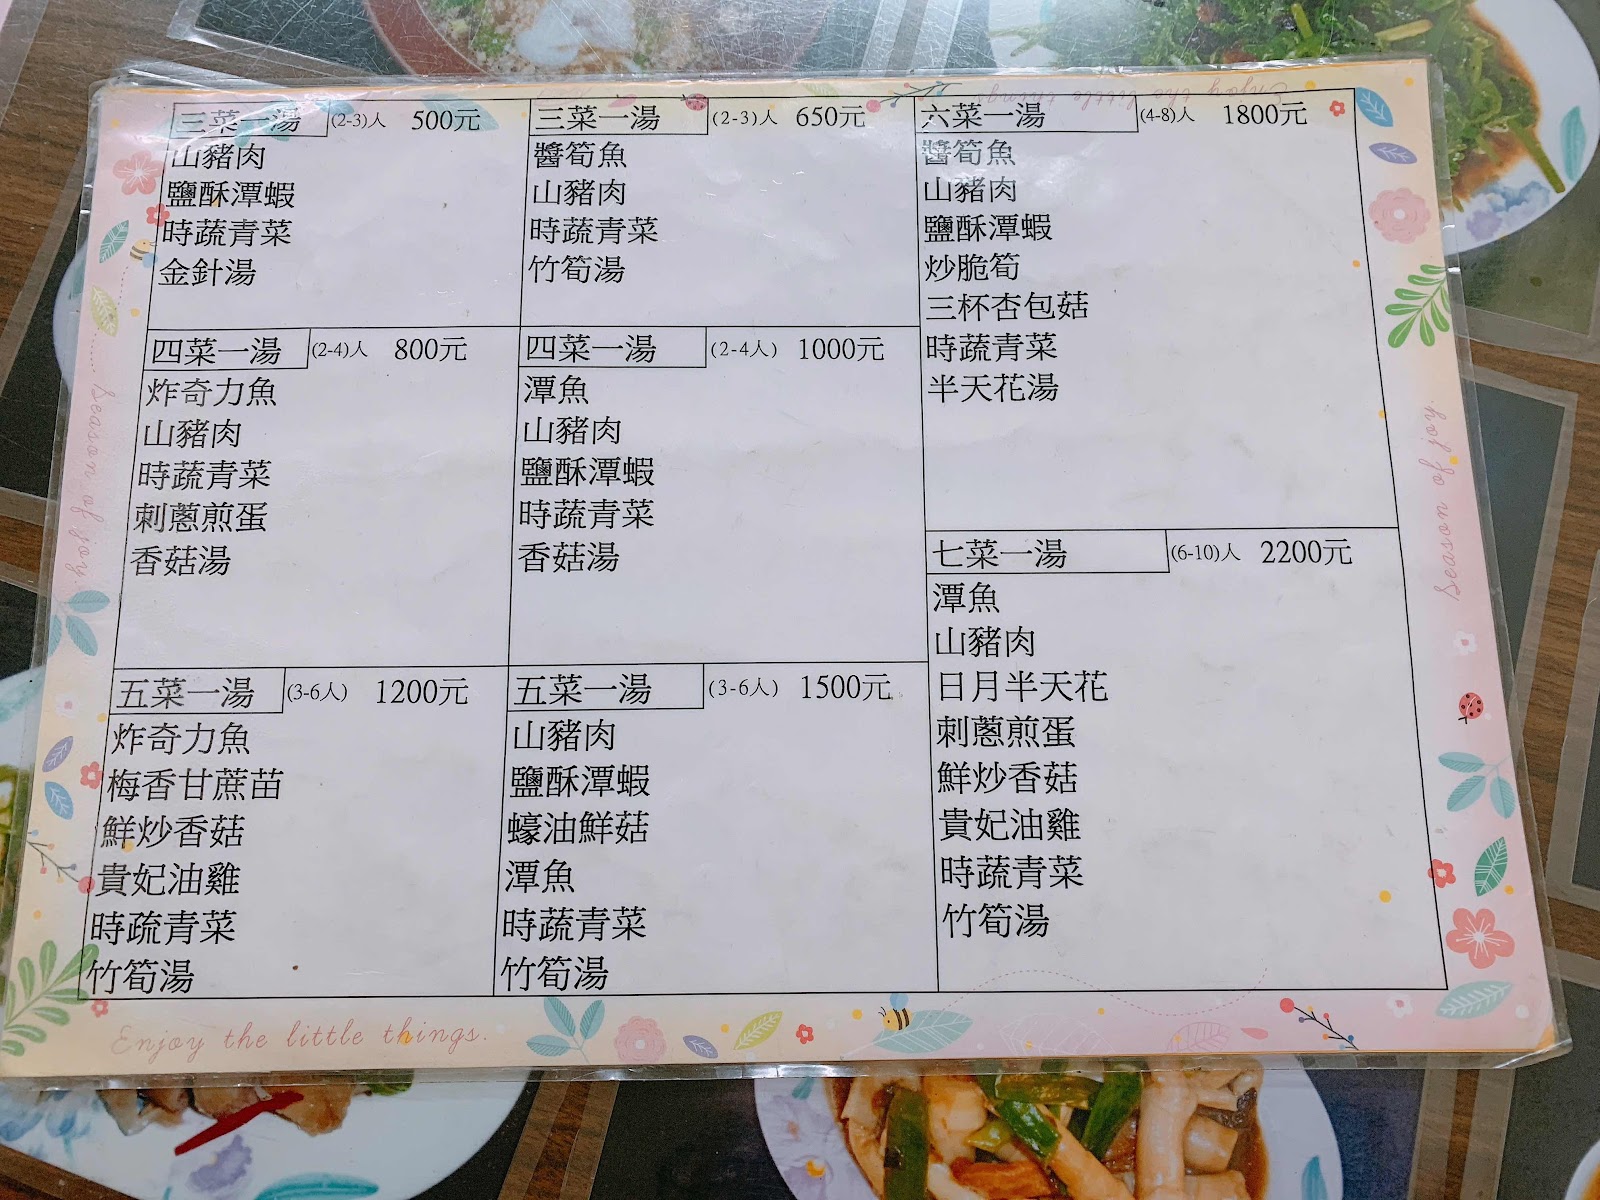 三菜一湯 (2-3)人 500元
山豬肉
鹽酥潭蝦
時蔬青菜
金針湯
三菜一湯 (2-3)人 650元
醬筍魚
山豬肉
時蔬青菜
竹筍湯
六菜一湯 (4-8)人 1800元
醬筍魚
山豬肉
鹽酥潭蝦
炒脆筍
三杯杏包菇
時蔬青菜
半天花湯
四菜一湯 (2-4)人 800元
炸奇力魚
山豬肉
時蔬青菜
刺蔥煎蛋
香菇湯
四菜一湯 (2-4人) 1000元
潭魚
山豬肉
鹽酥潭蝦
時蔬青菜
香菇湯
七菜一湯 (6-10)人 2200元
潭魚
山豬肉
日月半天花
刺蔥煎蛋
鮮炒香菇
貴妃油雞
時蔬青菜
竹筍湯
五菜一湯 (3-6人) 1200元
炸奇力魚
梅香甘蔗苗
鮮炒香菇
貴妃油雞
時疏青菜
竹筍湯
五菜一湯 (3-6人) 1500元
山豬肉
鹽酥潭蝦
蠔油鮮菇
潭魚
時蔬青菜
竹筍湯
Enjoy the little things.
Season of joy.
Season of joy.
Enjoy the little things